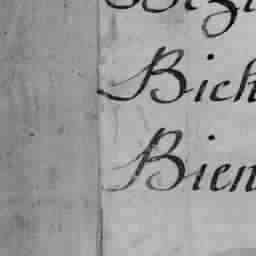 Bich
Bien